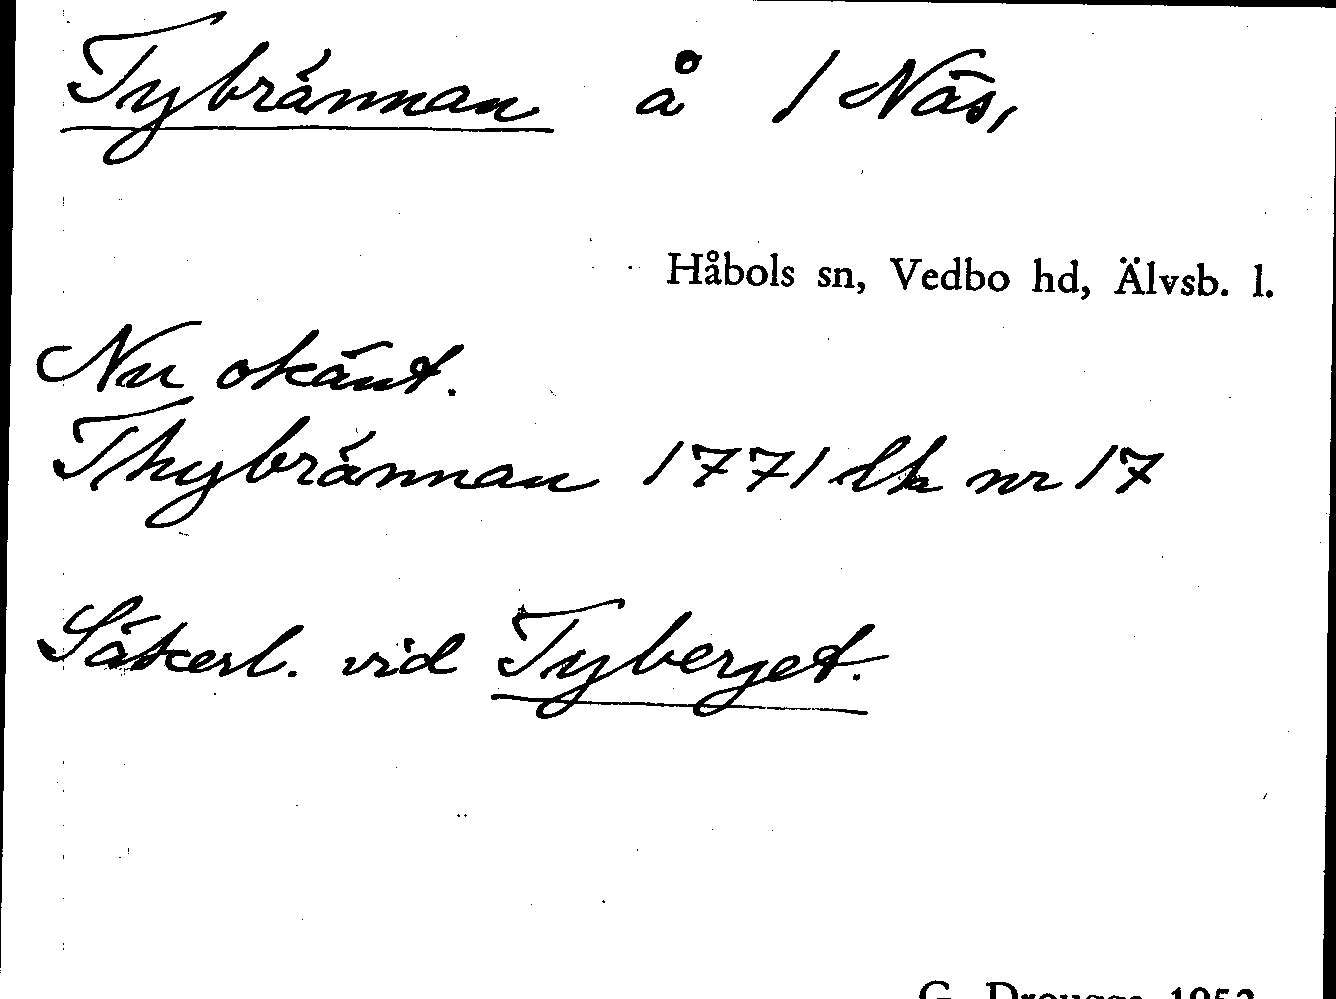 Tybrännan å 1 Näs,
Håbols sn, Vedbo hd, Älvsb. l.
Nu okänt.
Thybrännan 1771 lk nr 17
Säkerl. vid Tyberget.
G. Drougge 1952